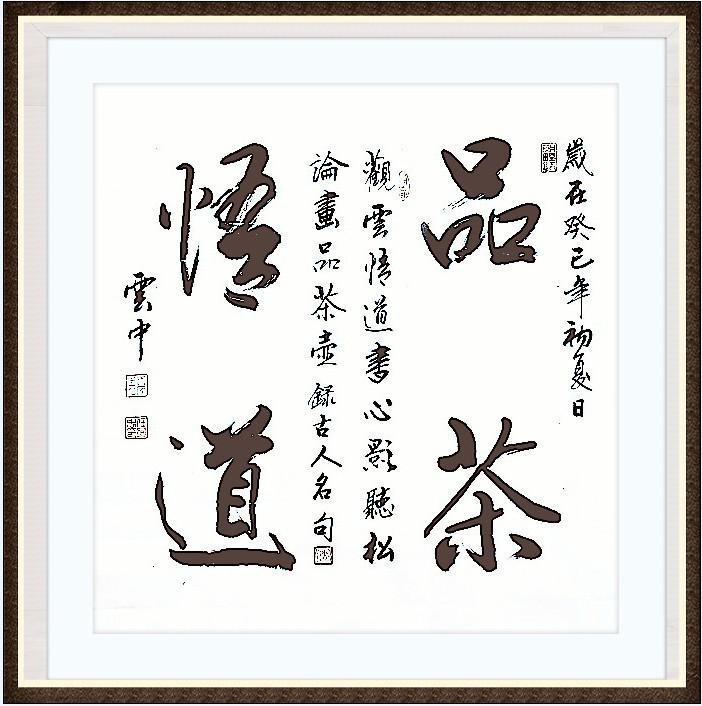 歲在癸巳年初夏日
品茶
觀雲悟道書心影聽松
論畫品茶壺錄古人名句
悟道
雲中